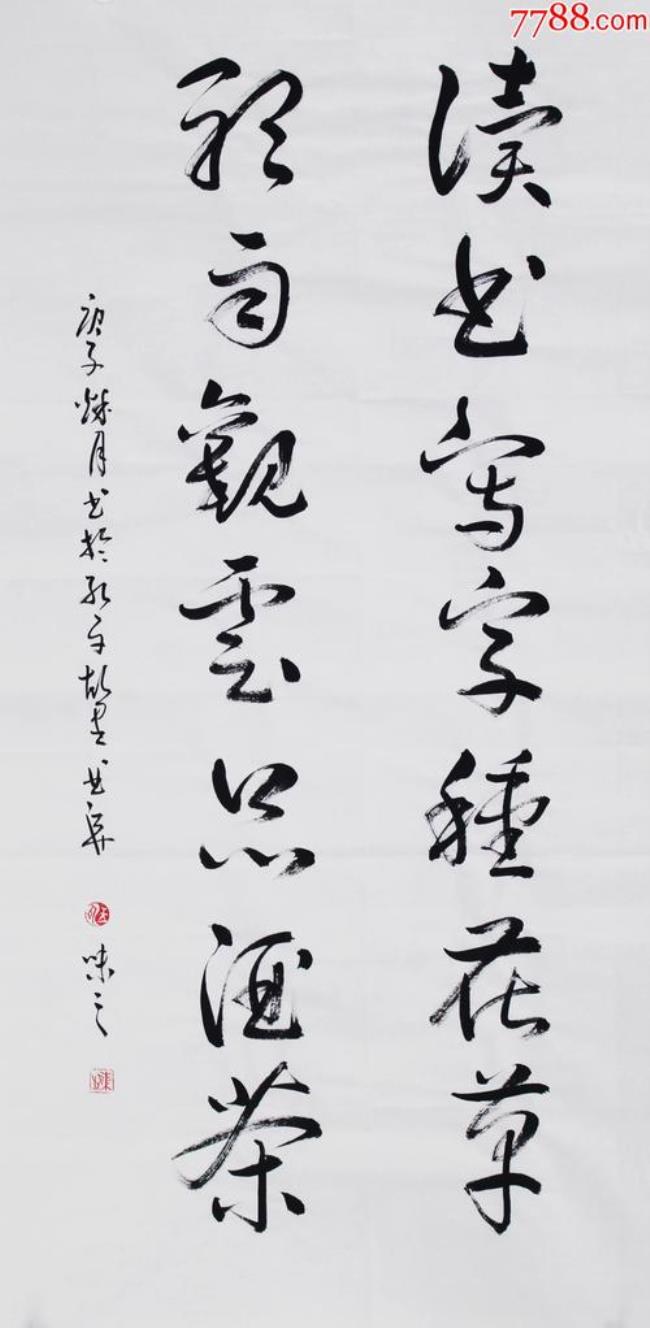 7788.com
讀书寫字種花草
聽雨觀雲品酒茶
庚子秋月书於孔子故里曲阜
味之